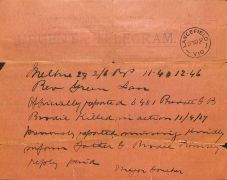 TELEGRAM.
LANCEFIELD
VIC
Melbne 29 2/6 RP 11-40 12-46
Rev Green Lan
Officially reported 5401 Private G B
Brodie Killed in action 11/4/17
Previously reported missing Kindly
inform Father G Brodie Romsey
reply paid
Major